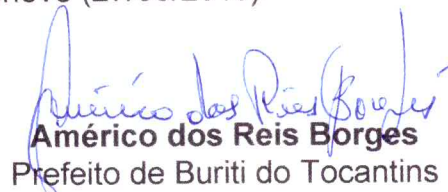 Américo dos Reis Borges
Américo dos Reis Borges
Prefeito de Buriti do Tocantins